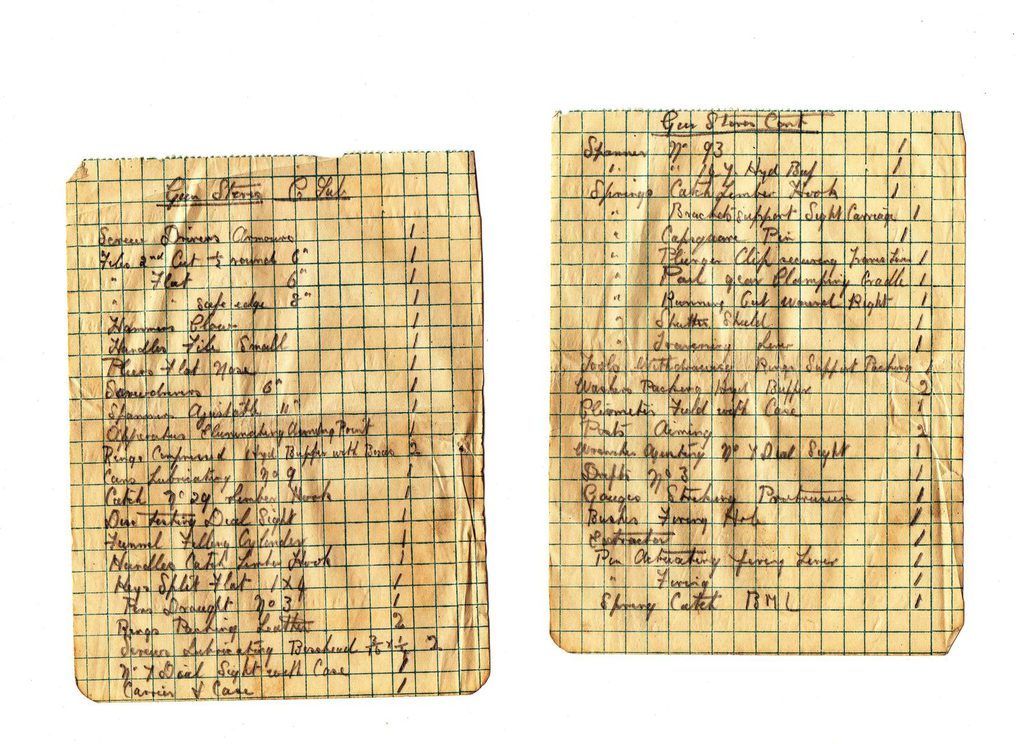 Gun Stores
Screw Drivers Armourers 1
Files 2nd Cut ½ round 6" 1
" Flat 6" 1
" " safe edge 8" 1
Hammers Claw 1
Handles File Small 1
Pliers Flat Nose 1
6" 1
Spanners 11" 1
Apparatus Illuminating Aiming Point 1
Rings Compressed Hyd Buffer with 2
Cans Lubricating No 9 1
Catch No 29 Limber Hook 1
Disc Testing Dial Sight 1
Funnel Filling Cylinder 1
Handles Catch Limber Hook 1
Keys Split Flat 1 X 4 1
Pins Draught No 3 1
Rings Packing Leather 2
Screws Lubricating 2
No 7 Dial Sight with Case 1
Carrier & Case 1
Gun Stores Cont
Spanner No 93 1
" " Hyd Buf 1
Springs Catch Limber Hook 1
" Brackets support Sight Carriage 1
" Capsquare Pin 1
" Plunger Clip securing 1
" gear Clamping Cradle 1
" Running Out Right 1
" Shutter Shield 1
" Traversing Lever 1
Tools Withdrawing Rings Support Packing 1
Washers Packing Hyd Buffer 2
Field with Case 1
Posts Aiming 2
No 7 Dial Sight 1
Drifts No 3 1
Gauges Striking Protrusion 1
Bushes Firing Hole 1
Extractor 1
Pin Actuating firing Lever 1
" Firing 1
Spring Catch B M L 1